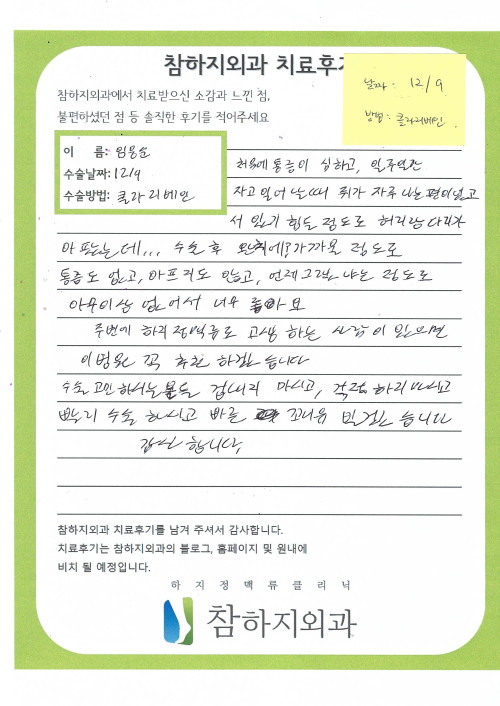 참하지외과 치료후기
날짜 : 12/9
방법 : 클라리베인
참하지외과에서 치료받으신 소감과 느낀 점,
불편하셨던 점 등 솔직한 후기를 적어주세요
이 름: 임용순
수술날짜: 12/9
수술방법: 클라리베인
처음에 통증이 심하고, 일주일간
자고 일어날때 쥐가 자주 나는편이였고
서 있기 힘들 정도로 허리랑 다리가
아팠는데... 수술후 가까울 정도로
통증도 없고, 아프지도 않고, 언제 그랬냐는 정도로
아무이상 없어서 너무 좋아요
주변에 하지정맥류로 고생 하는 사람이 있으면
이병원 꼭 추천 하겠습니다
수술 고민하시는 분들 겁내지 마시고, 걱정 하지마시고
빨리 수술 하시고 바른 빌겠습니다
감사 합니다.
참하지외과 치료후기를 남겨 주셔서 감사합니다.
치료후기는 참하지외과의 블로그, 홈페이지 및 원내에
비치 될 예정입니다.
하지정맥류클리닉
참하지외과